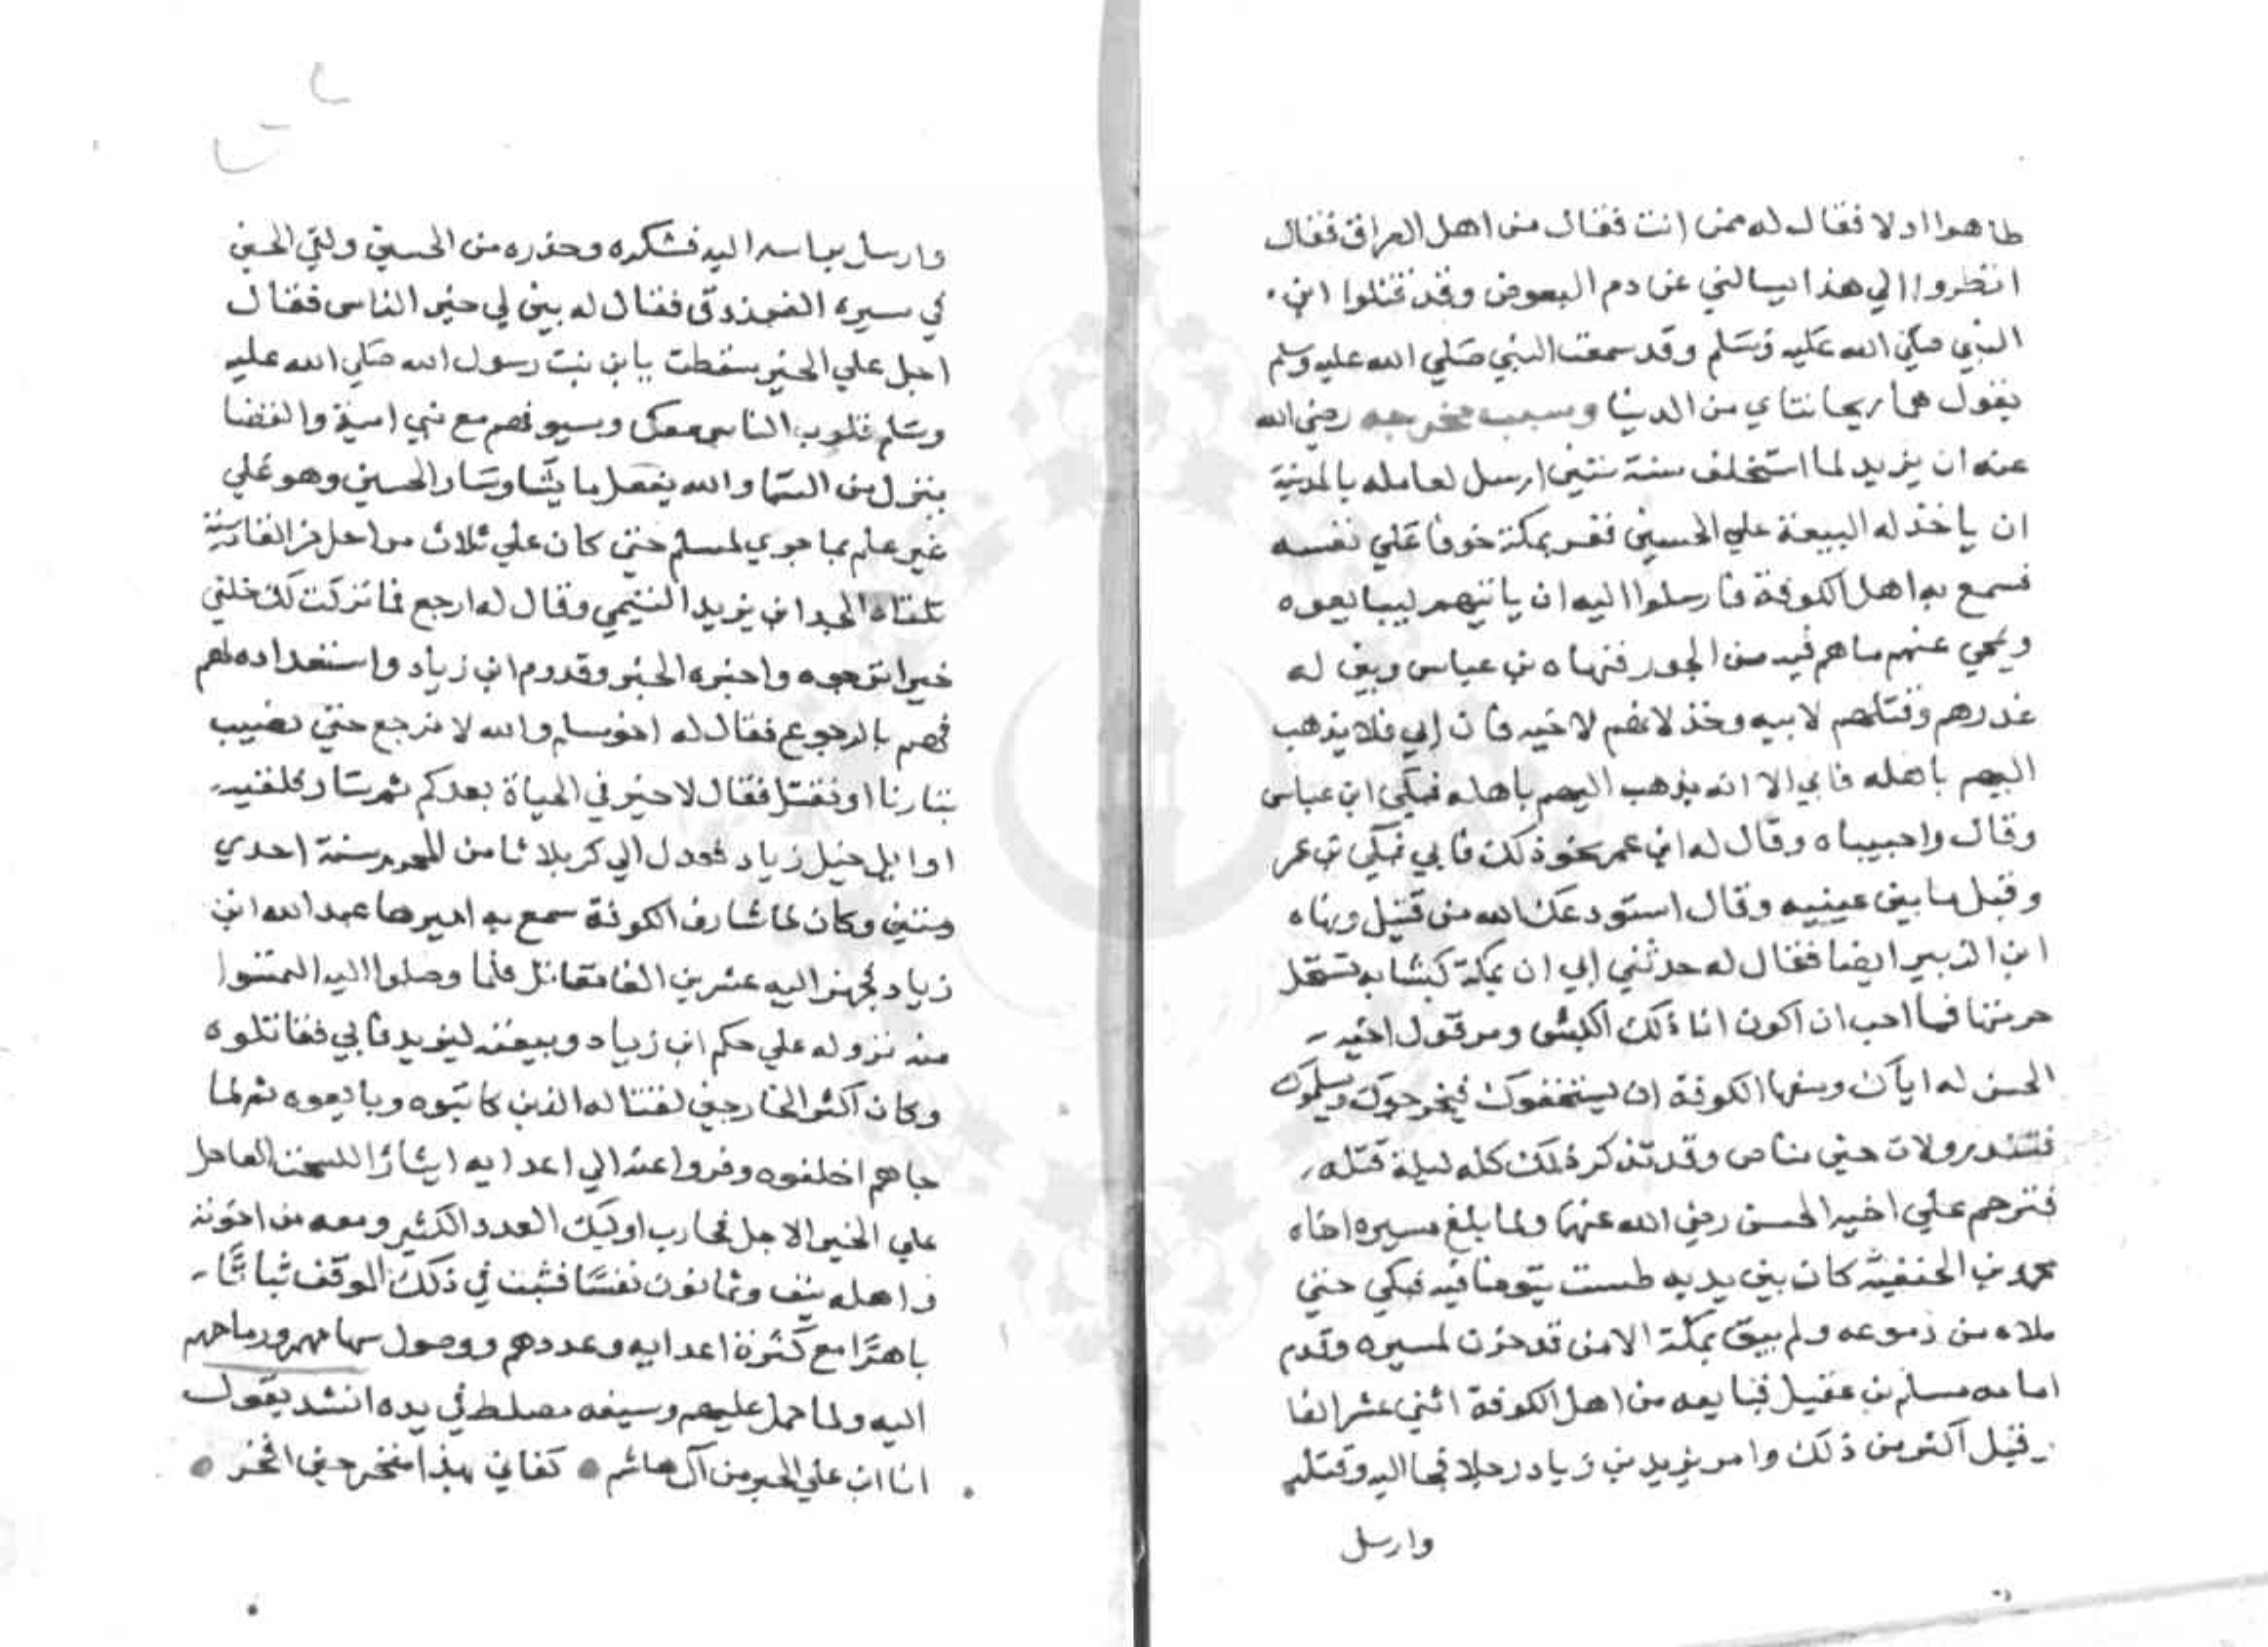 طاهرا اولا فقال له ممن انت فقال من اهل العراق فقال
انظروا الي هذا يسالني عن دم البعوض وقد قتلوا ابن
النبي صلي الله عليه وسلم وقد سمعت النبي صلي الله عليه وسلم
يقول هما ريحانتاي من الدنيا وسبب مخرجه رضي الله
عنه ان يزيد لما استخلف سنة ستين ارسل لعامله بالمدينة
ان ياخذ له البيعة علي الحسين ففر بمكة خوفا علي نفسه
فسمع به اهل الكوفة فارسلوا اليه ان ياتيهم ليبايعوه
ويمحي عنهم ما هم فيه من الجور فنهاه بن عباس وبين له
غدرهم وقتلهم لابيه وخذلانهم لاخيه فان ابي فلا يذهب
اليهم باهله فابي الا انه يذهب اليهم باهله فبكي ابن عباس
وقال واحبيباه وقال له ابن عمر نحو ذلك فابي فبكي بن عمر
وقبل ما بين عينيه وقال استودعك الله من قتيل ونهاه
ابن الزبير ايضا فقال له حدثني ابي ان بمكة كبشا به تستحل
حرمتها فما احب ان اكون انا ذلك الكبش ومر قول اخيه
الحسن له اياك وسفها الكوفة ان يستخفوك فيخرجوك ويسلموك
فتندم ولات حين مناص وقد تذكر ذلك كله ليلة قتله
فترحم علي اخيه الحسن رضي الله عنهما ولما بلغ مسيره اخاه
محمد بن الحنفية كان بين يديه طست يتوضا فيه فبكي حتي
ملاه من دموعه ولم يبق بمكة الا من قد حزن لمسيره وقدم
امامه مسلم بن عقيل فبايعه من اهل الكوفة اثني عشر الفا
وقيل اكثر من ذلك وامر يزيد بن زياد رجلا فجا اليه وقتله
وارسل
وارسل براسه اليه فشكره وحذره من الحسين ولقي الحسين
في مسيره الفرزدق فقال له بين لي خبر الناس فقال
اجل علي الخبير سقطت يا بن بنت رسول الله صلي الله عليه
وسلم قلوب الناس معك وسيوفهم مع بني امية والقضا
ينزل من السما والله يفعل ما يشا وسار الحسين وهو علي
غير علم بما جري لمسلم حتي كان علي ثلاث مراحل من القادسية
تلقاه الحر ابن يزيد التيمي وقال له ارجع فما تركت لك خلفي
خيرا ترجوه واخبره الخبر وقدوم ابن زياد واستعداده لهم
فهم بالرجوع فقال له اخو مسلم والله لا نرجع حتي نصيب
بثارنا او نقتل فقال لا خير في الحياة بعدكم ثم سار فلقيه
اوايل خيل زياد فعدل الي كربلا ثامن المحرم سنة احدي
وستين وكان لما شارف الكوفة سمع به اميرها عبد الله ابن
زياد فجهز اليه عشرين الف مقاتل فلما وصلوا اليه التمسوا
منه نزوله علي حكم ابن زياد وبيعته ليزيد فابي فقاتلوه
وكان اكثر الخارجين لقتاله الذين كاتبوه وبايعوه ثم لما
جاهم اخلفوه وفروا عنه الي اعدايه ايثارا للسحت العاجل
علي الخير الاجل فحارب اوليك العدد الكثير ومعه من اخوته
واهله نيف وثمانون نفسا فثبت في ذلك الموقف ثباتا
باهرا مع كثرة اعدايه وعددهم ووصول سهامهم ورماحهم
اليه ولما حمل عليهم وسيفه مصلط في يده انشد يقول
انا ابن علي الحبر من آل هاشم • كفاني بهذا مفخر حين افخر •